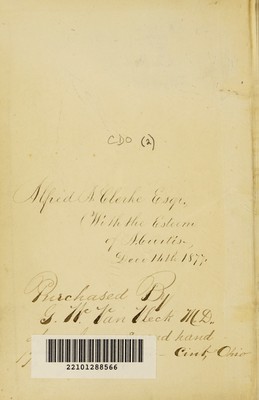 CDO (2)
Alfred S. Clarke Esqr.
With the Esteem
of A. Curtis
Decr 14th 1877
Purchased By
G. W. Van Vleck M.D.
hand
Cint, Ohio
22101288566